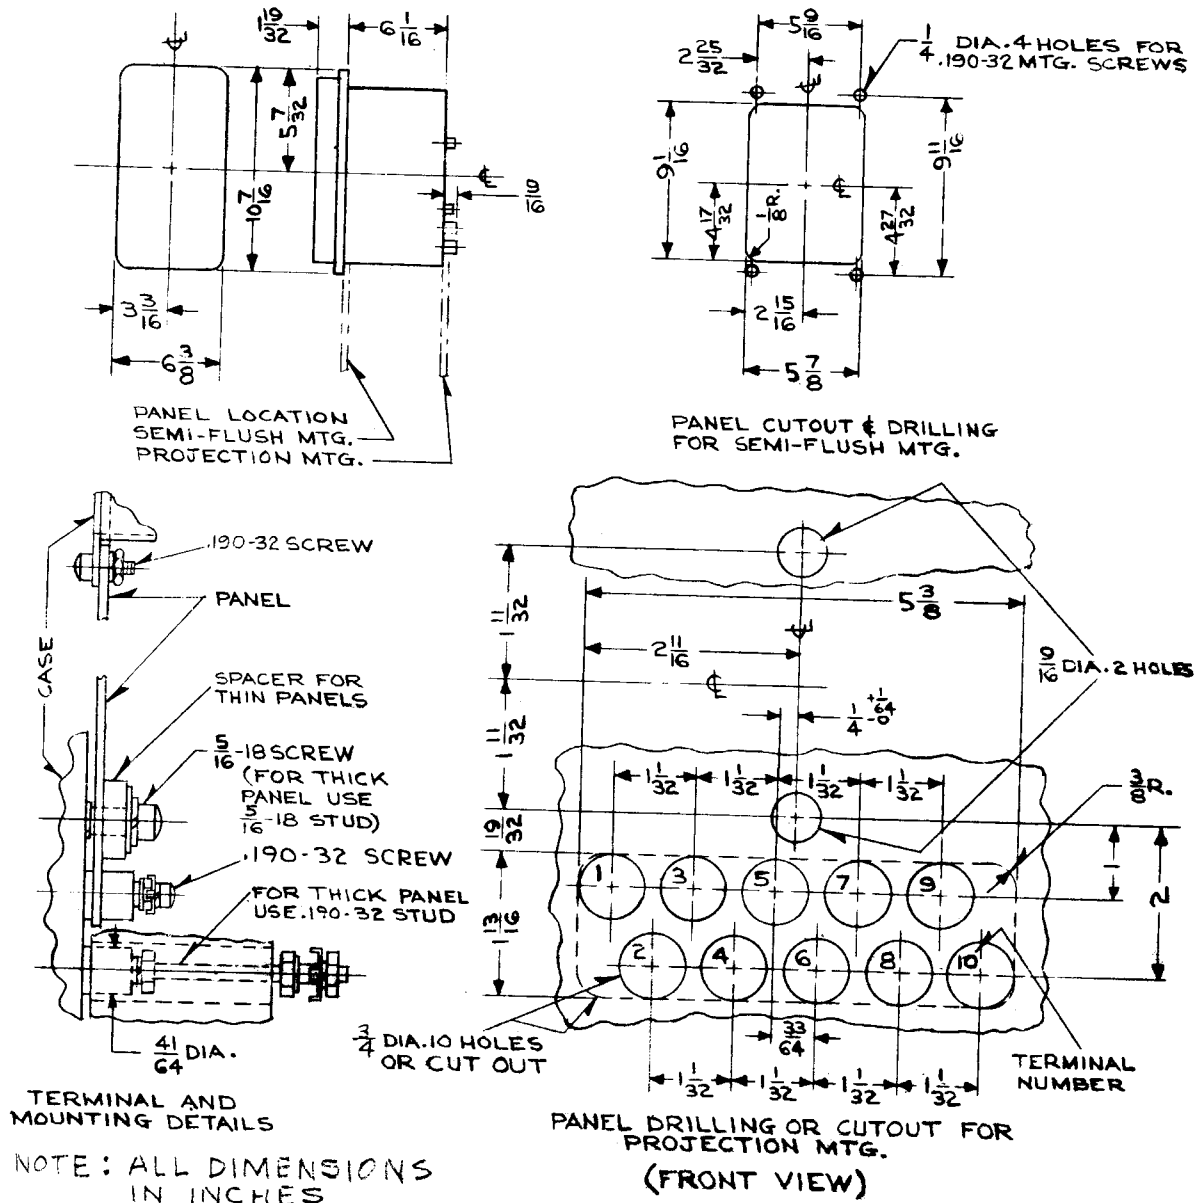 1 19/32
6 1/16
℄
5 7/32
10 7/16
℄
3 3/16
6 3/8
PANEL LOCATION
SEMI-FLUSH MTG.
PROJECTION MTG.
5 9/16
2 25/32
℄
1/4 DIA. 4 HOLES FOR
.190-32 MTG. SCREWS
9 1/16
9 11/16
℄
1/8 R.
4 17/32
4 27/32
2 15/16
5 7/8
PANEL CUTOUT & DRILLING
FOR SEMI-FLUSH MTG.
.190-32 SCREW
PANEL
CASE
SPACER FOR
THIN PANELS
5/16-18 SCREW
(FOR THICK
PANEL USE
5/16-18 STUD)
.190-32 SCREW
FOR THICK PANEL
USE .190-32 STUD
41/64 DIA.
TERMINAL AND
MOUNTING DETAILS
NOTE: ALL DIMENSIONS
IN INCHES
1 11/32
5 3/8
℄
2 11/16
℄
9/16 DIA. 2 HOLES
1/4 +1/64 -0
1 11/32
1 1/32
1 1/32
1 1/32
1 1/32
3/8 R.
19/32
1
2
1 3 5 7 9
1 3/16
2 4 6 8 10
3/4 DIA. 10 HOLES
OR CUT OUT
33/64
TERMINAL
NUMBER
1 1/32
1 1/32
1 1/32
1 1/32
PANEL DRILLING OR CUTOUT FOR
PROJECTION MTG.
(FRONT VIEW)